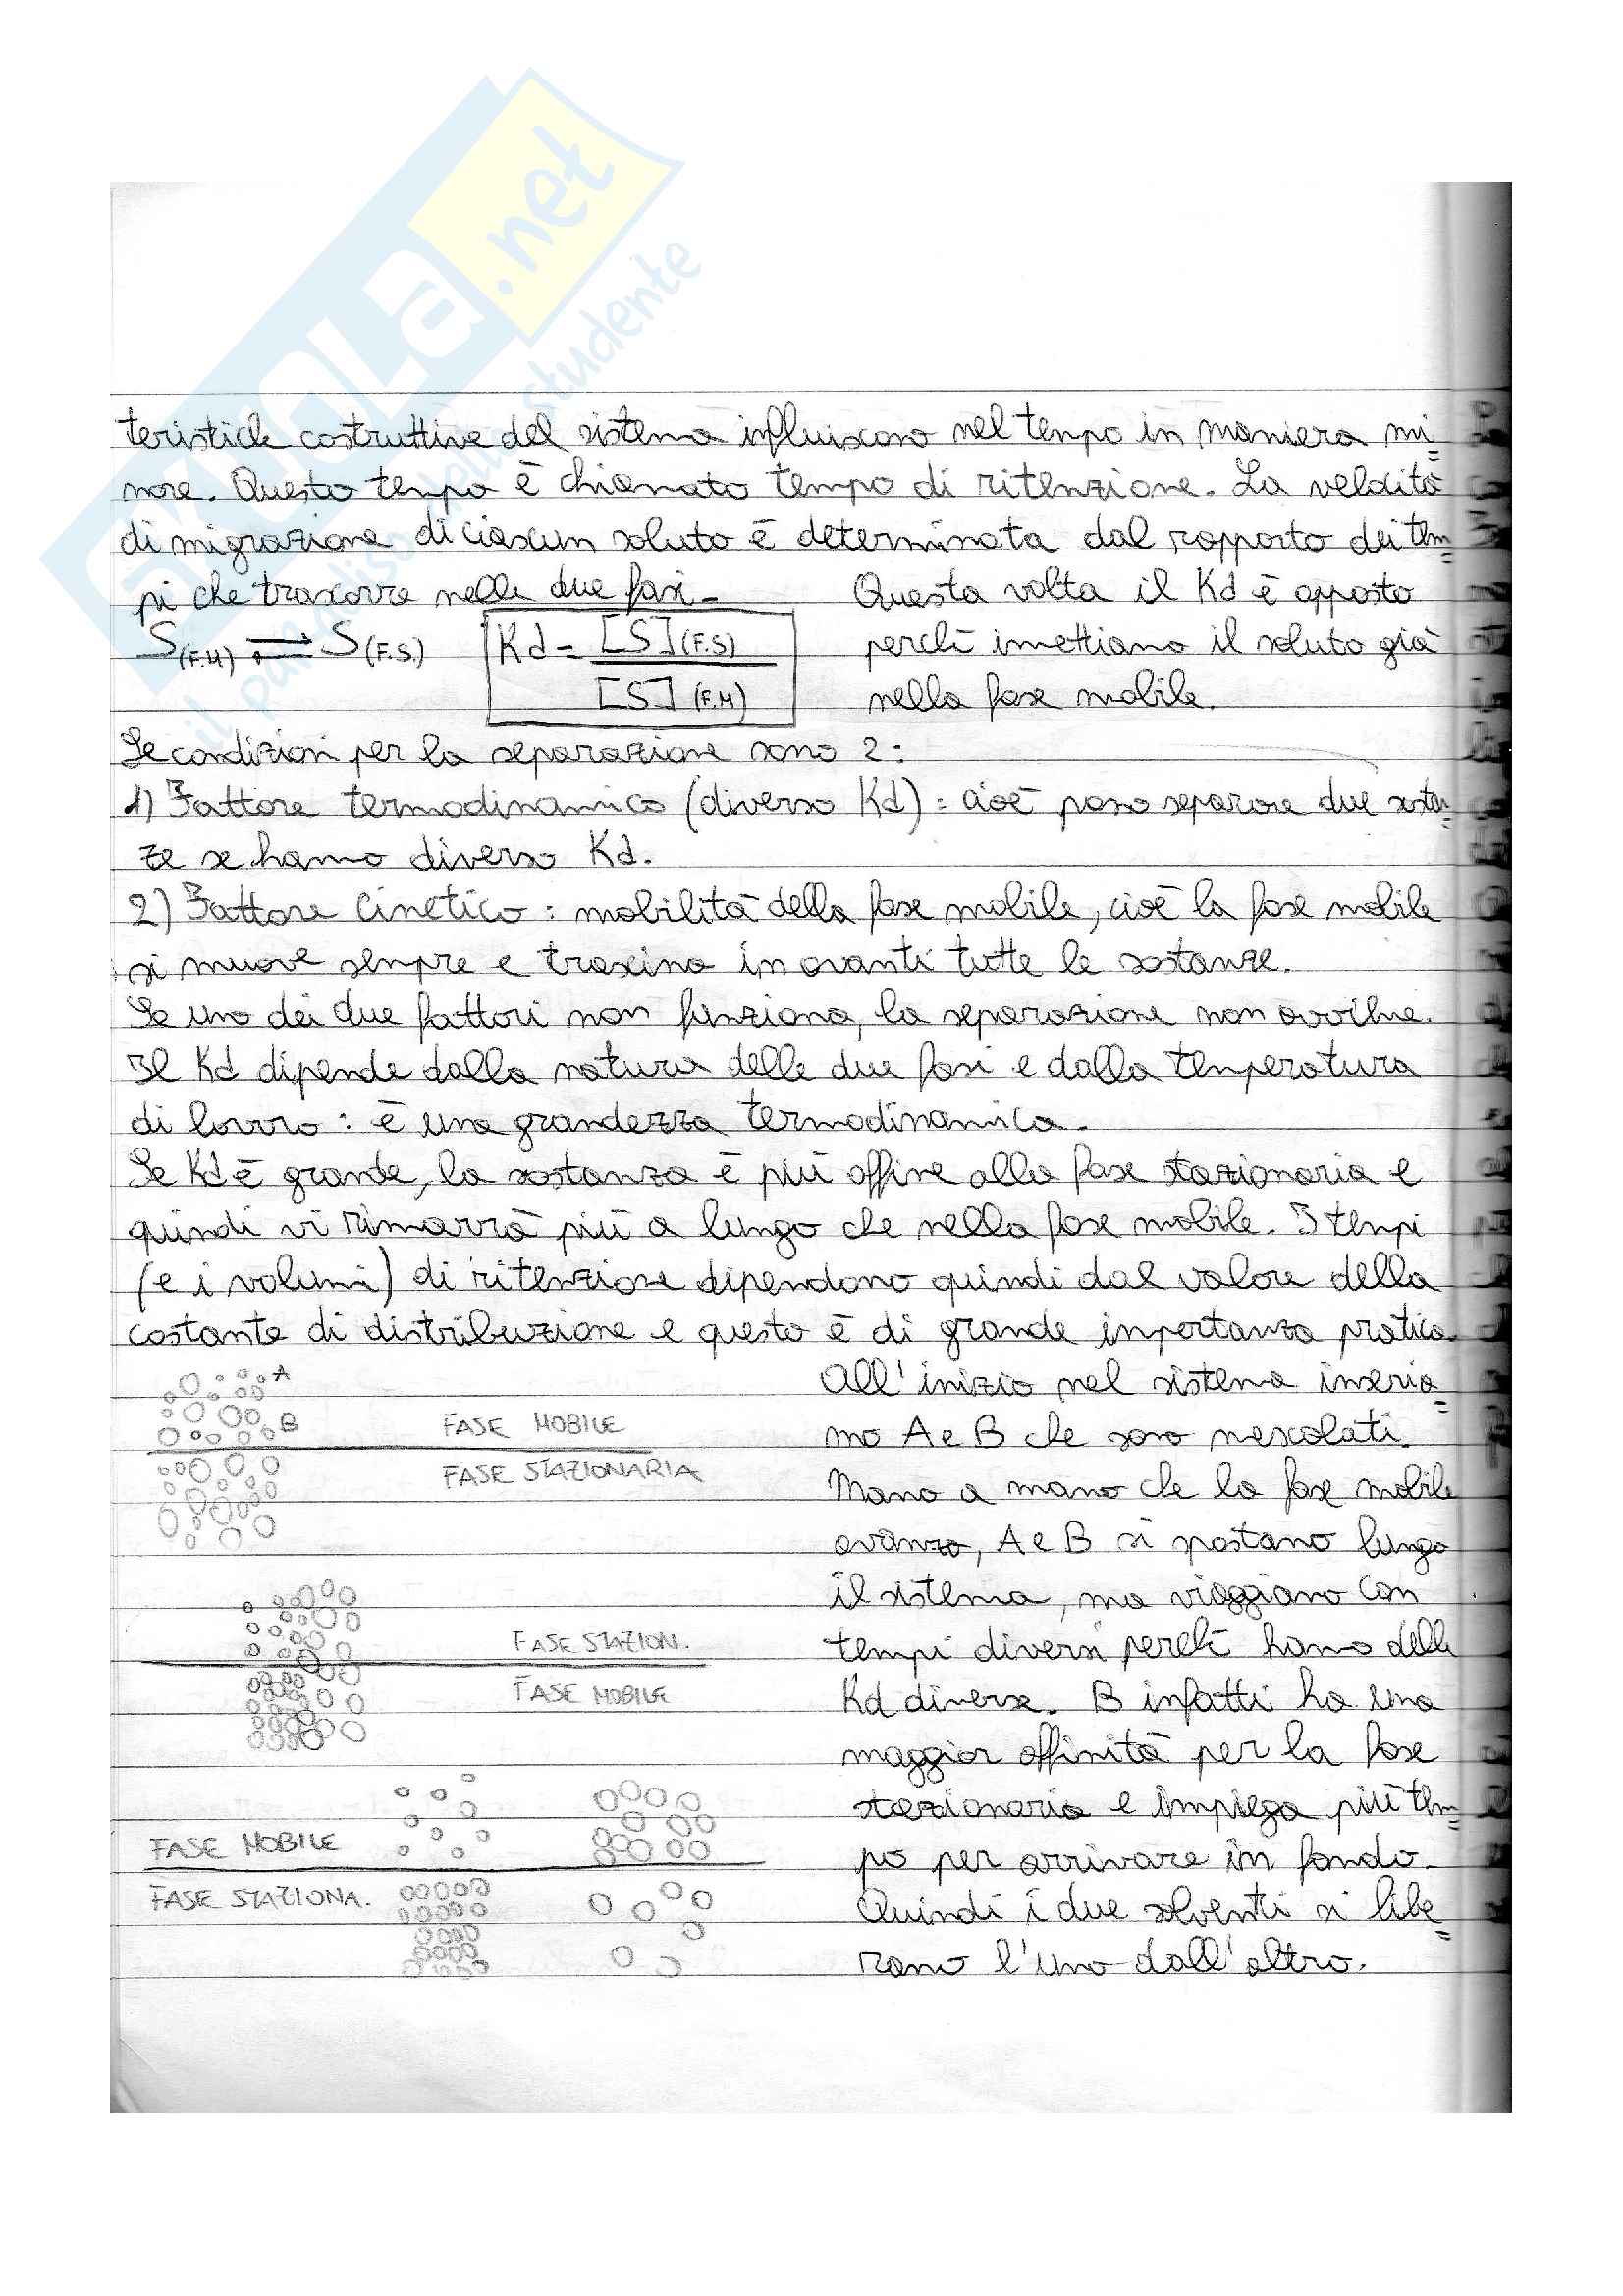 SKUOLA.net
il paradiso dello studente
teristiche costruttive del sistema influiscono nel tempo in maniera mi=
nore. Questo tempo è chiamato tempo di ritenzione. La velocità
di migrazione di ciascun soluto è determinata dal rapporto dei tem=
pi che trascorre nelle due fasi.
S(F.M) ⇌ S(F.S.)
Kd = [S](F.S) / [S](F.M)
Questa volta il Kd è opposto
perché imettiamo il soluto già
nella fase mobile.
Le condizioni per la separazione sono 2:
1) Fattore termodinamico (diverso Kd): cioè posso separare due sostan=
ze se hanno diverso Kd.
2) Fattore cinetico: mobilità della fase mobile, cioè la fase mobile
si muove sempre e trascina in avanti tutte le sostanze.
Se uno dei due fattori non funziona, la separazione non avviene.
Il Kd dipende dalla natura delle due fasi e dalla temperatura
di lavoro: è una grandezza termodinamica.
Se Kd è grande, la sostanza è più affine alla fase stazionaria e
quindi vi rimarrà più a lungo che nella fase mobile. I tempi
(e i volumi) di ritenzione dipendono quindi dal valore della
costante di distribuzione e questo è di grande importanza pratica.
A
B
FASE MOBILE
FASE STAZIONARIA
All'inizio nel sistema inseria=
mo A e B che sono mescolati.
Mano a mano che la fase mobile
avanza, A e B si spostano lungo
il sistema, ma viaggiano con
tempi diversi perché hanno delle
Kd diverse. B infatti ha una
maggior affinità per la fase
stazionaria e impiega più tem=
po per arrivare in fondo.
Quindi i due solventi si libe=
rano l'uno dall'altro.
FASE STAZION.
FASE MOBILE
FASE MOBILE
FASE STAZIONA.